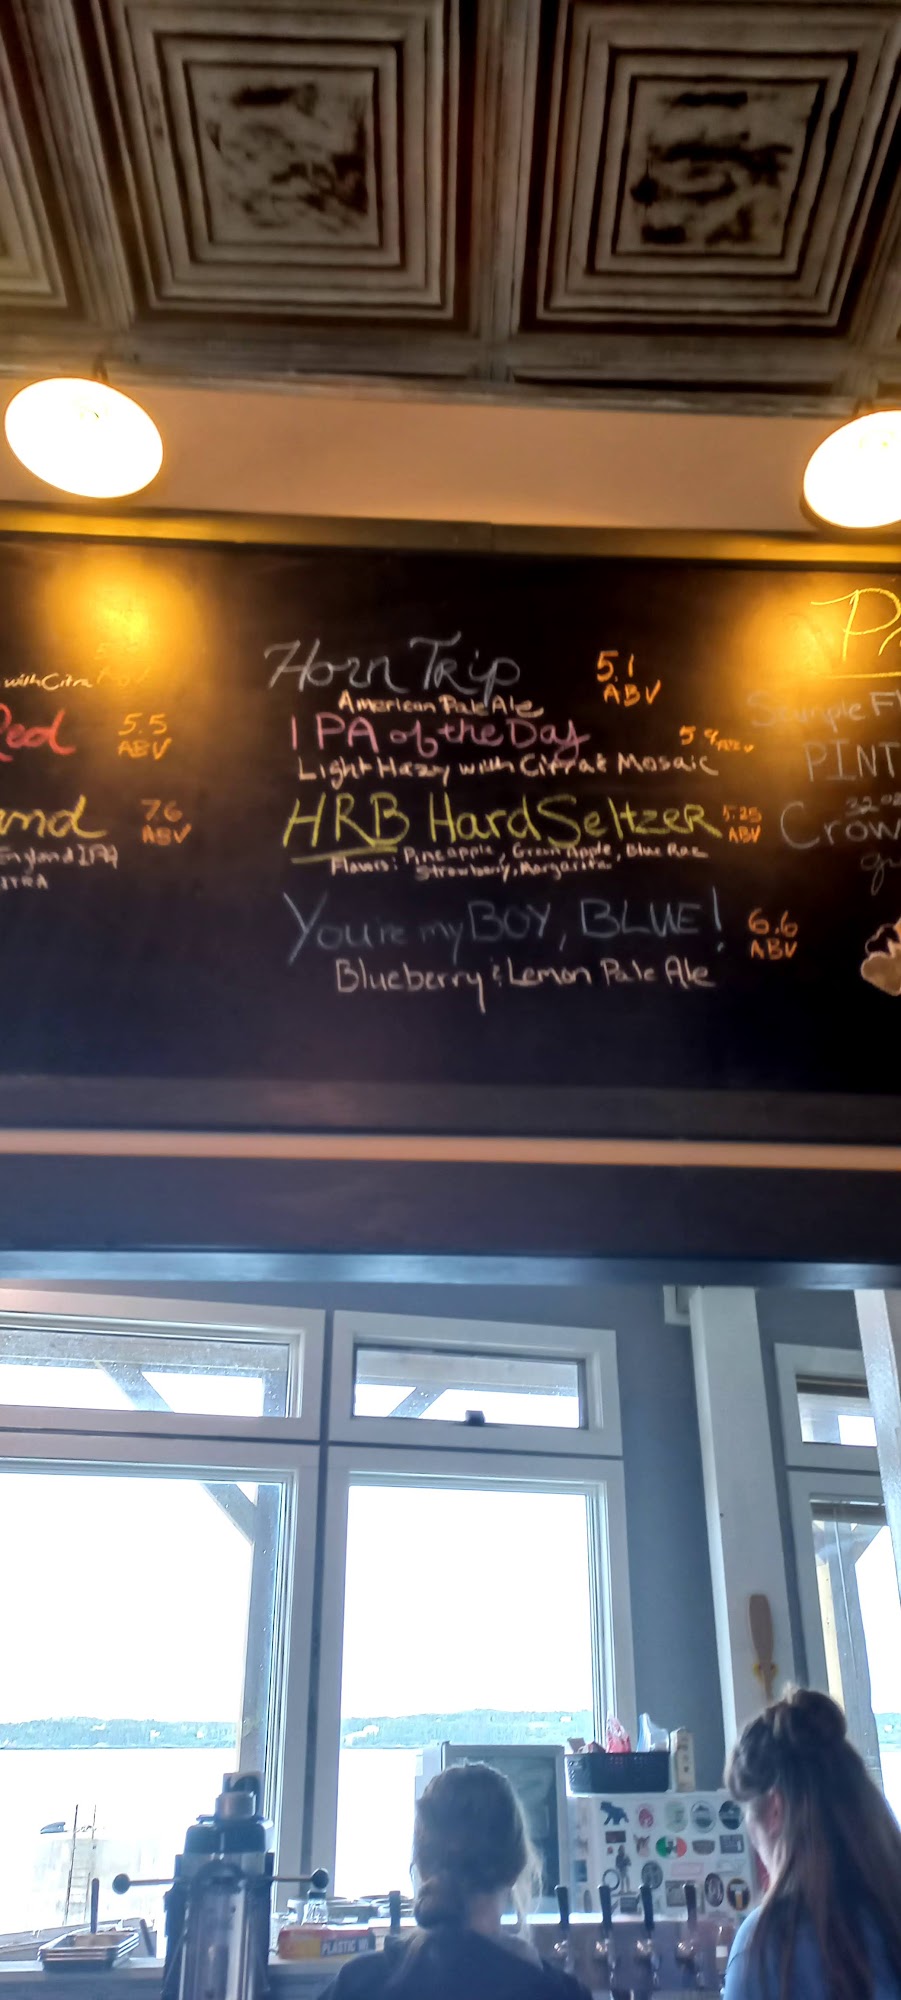 with Citra
Red 5.5 ABV
and 7.6 ABV
England IPA
Horn Trip 5.1 ABV
American Pale Ale
IPA of the Day 5.9 ABV
Light Hazy with Citra & Mosaic
HRB Hard Seltzer 5.25 ABV
Flavors: Pineapple, Green Apple, Blue Raz
Strawberry, Margarita
You're my BOY, BLUE! 6.6 ABV
Blueberry & Lemon Pale Ale
Sample Fl
PINT
32 oz
Crow
PLASTIC